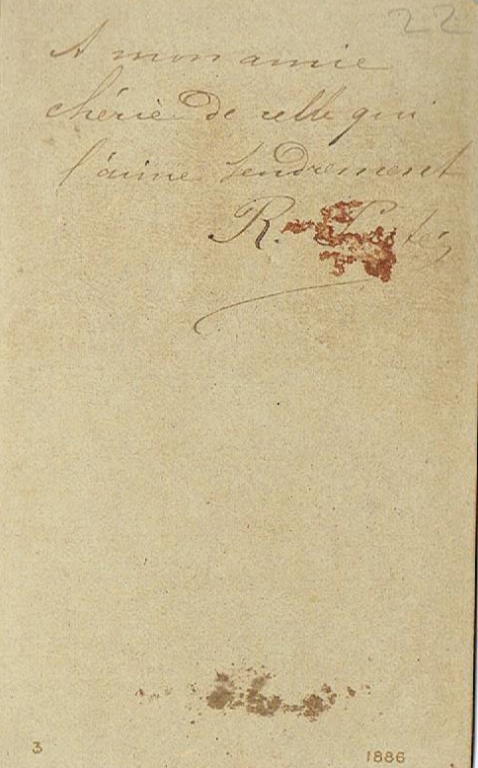 22
A mon amie
chérie de celle qui
l'aime tendrement
R.
3
1886